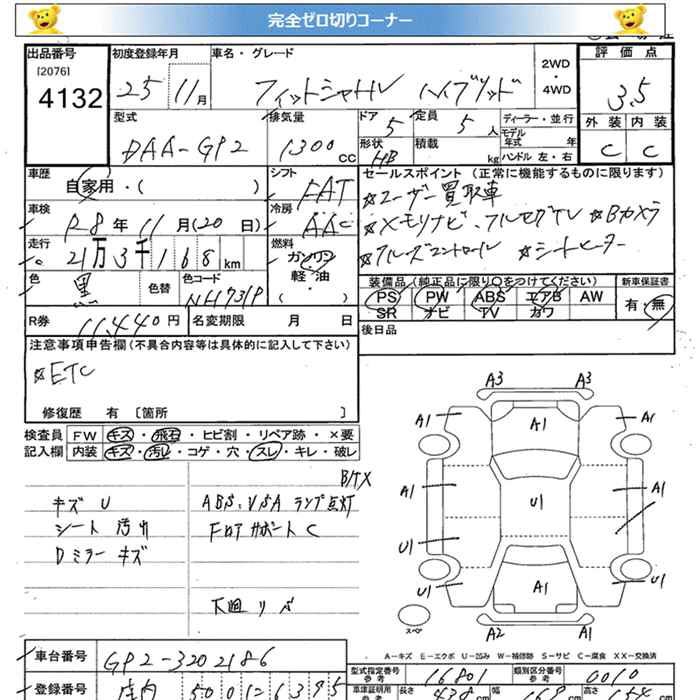 完全ゼロ切りコーナー
出品番号 初度登録年月 車名・グレード 2WD・4WD 評価点
[2076]
4132 25 11月 フィットシャトルHV ハイブリッド 3.5
型式 排気量 ドア 定員 ディーラー・並行 外装 内装
DAA-GP2 1300 CC 5 5人 モデル年式 年 C C
形状 積載 ハンドル 左・右
HB kg
車歴 自家用・( ) シフト FAT セールスポイント (正常に機能するものに限ります)
☆ユーザー買取車
車検 R8年 11月(20日) 冷房 AAC ☆メモリナビ、フルセグTV ☆Bカメラ
走行 21万3千168km 燃料 ガソリン ☆クルーズコントロール ☆シートヒーター
軽・油
( )
色 黒 色替 色コード NH731P 装備品 (純正品に限り○をつけてください) 新車保証書
PS PW ABS エアB AW 有・無
SR ナビ TV カワ
R券 11,440円 名変期限 月 日 後日品
注意事項申告欄(不具合内容等は具体的に記入して下さい)
☆ETC
修復歴 有 〔箇所 〕
検査員 FW キズ・飛石・ヒビ割・リペア跡・×要
記入欄 内装 キズ・汚れ・コゲ・穴・スレ・キレ・破レ
B/TX
キズ U ABS、VSA ランプ点灯
シート 汚れ FロアサポートC
Dミラー キズ
下廻 サビ
A3 A3
A1 A1 A1
A1 U1 A1
U1
U1 A1 U1
スペア A2 A1
A-キズ E-エクボ U-凹み W-補修跡 S-サビ C-腐食 XX-交換済
車台番号 GP2-3202186 型式指定番号 参考 16801 類別区分番号 参考 0010
登録番号 庄内 500 1 6395 車庫証明用 参考 長さ cm 幅 cm 高さ cm